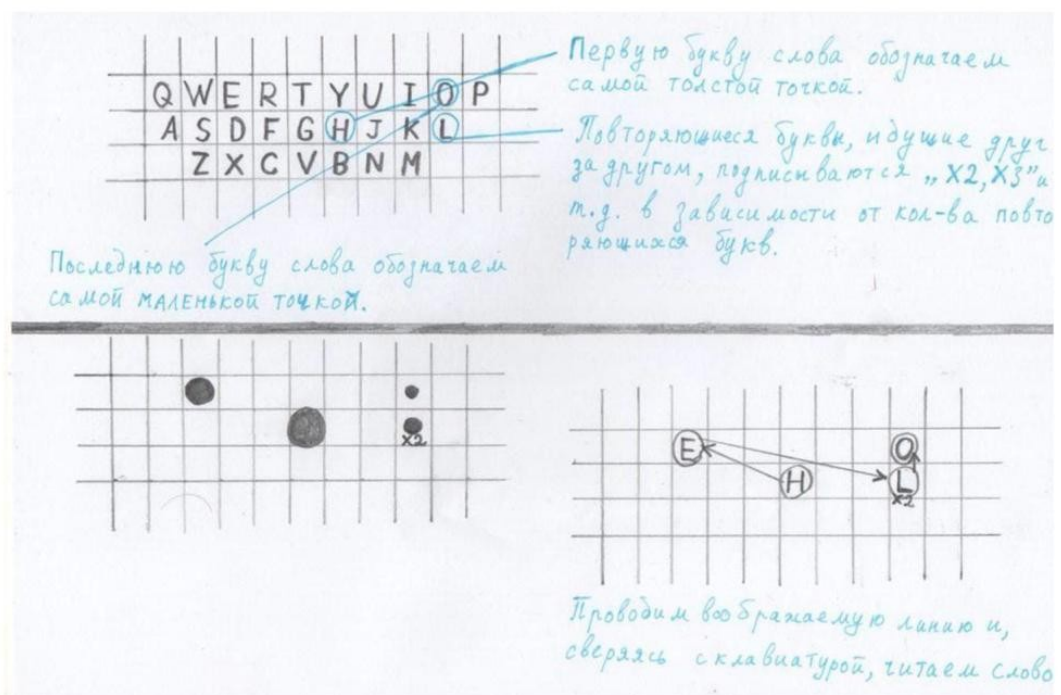 Q W E R T Y U I O P
A S D F G H J K L
Z X C V B N M
Первую букву слова обозначаем
самой толстой точкой.
Повторяющиеся буквы, идущие друг
за другом, подписываются „X2, X3" и
т.д. в зависимости от кол-ва повто
ряющихся букв.
Последнюю букву слова обозначаем
самой маленькой точкой.
X2
E O
H L
X2
Проводим воображаемую линию и,
сверяясь с клавиатурой, читаем слово